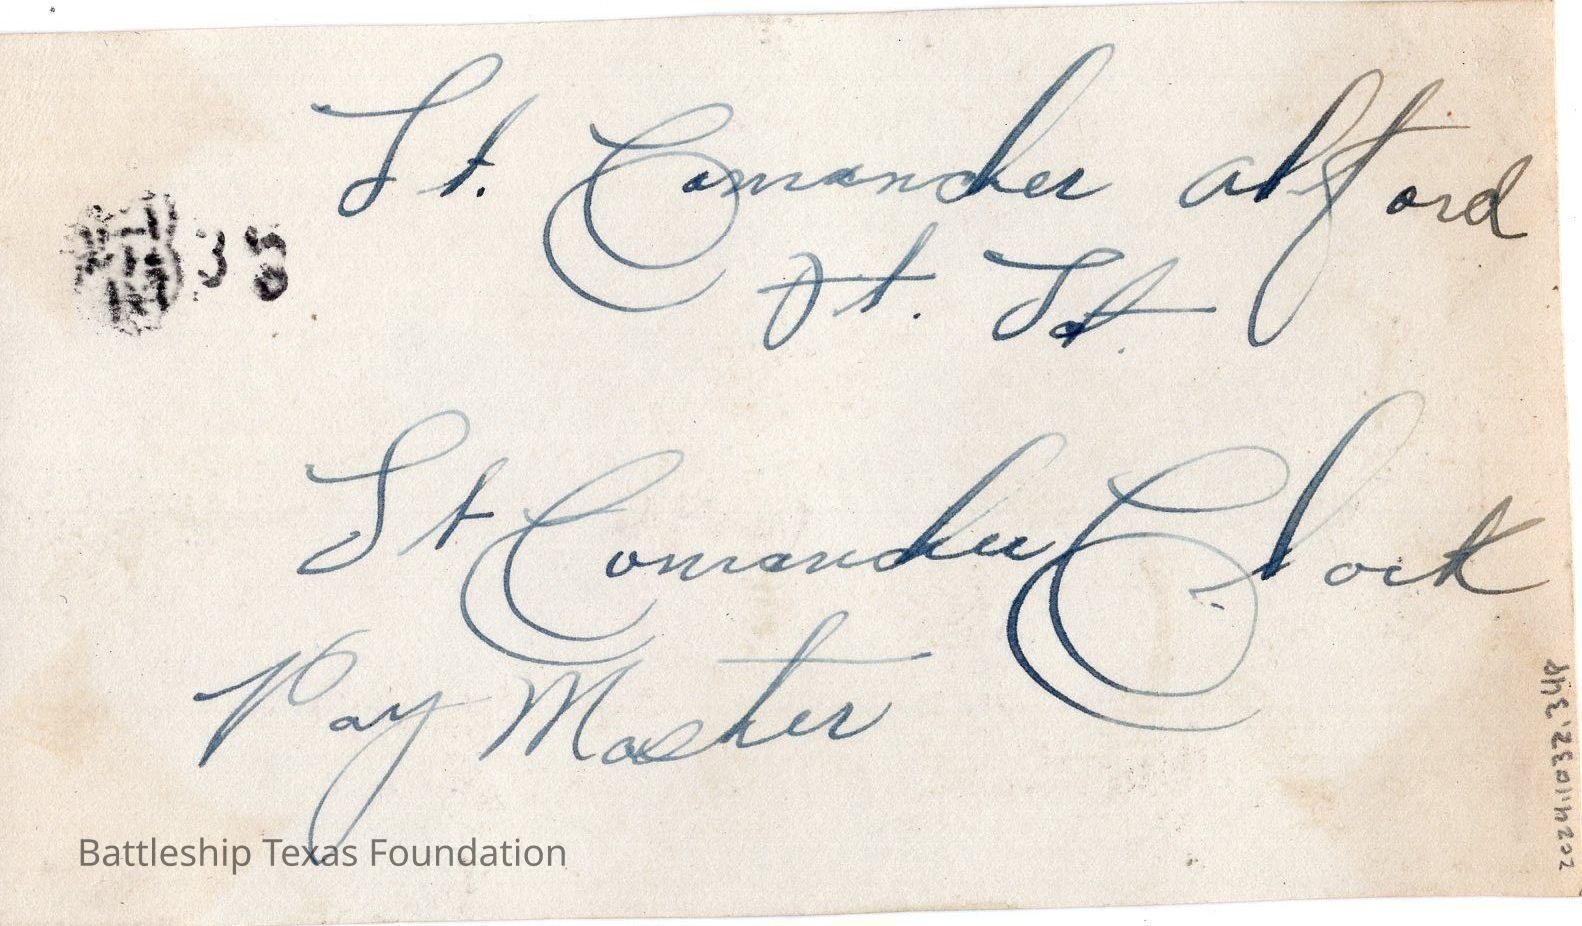 Lt. Comander Alford
Ft. Lt.
Lt Comander Clock
Pay Master
Battleship Texas Foundation